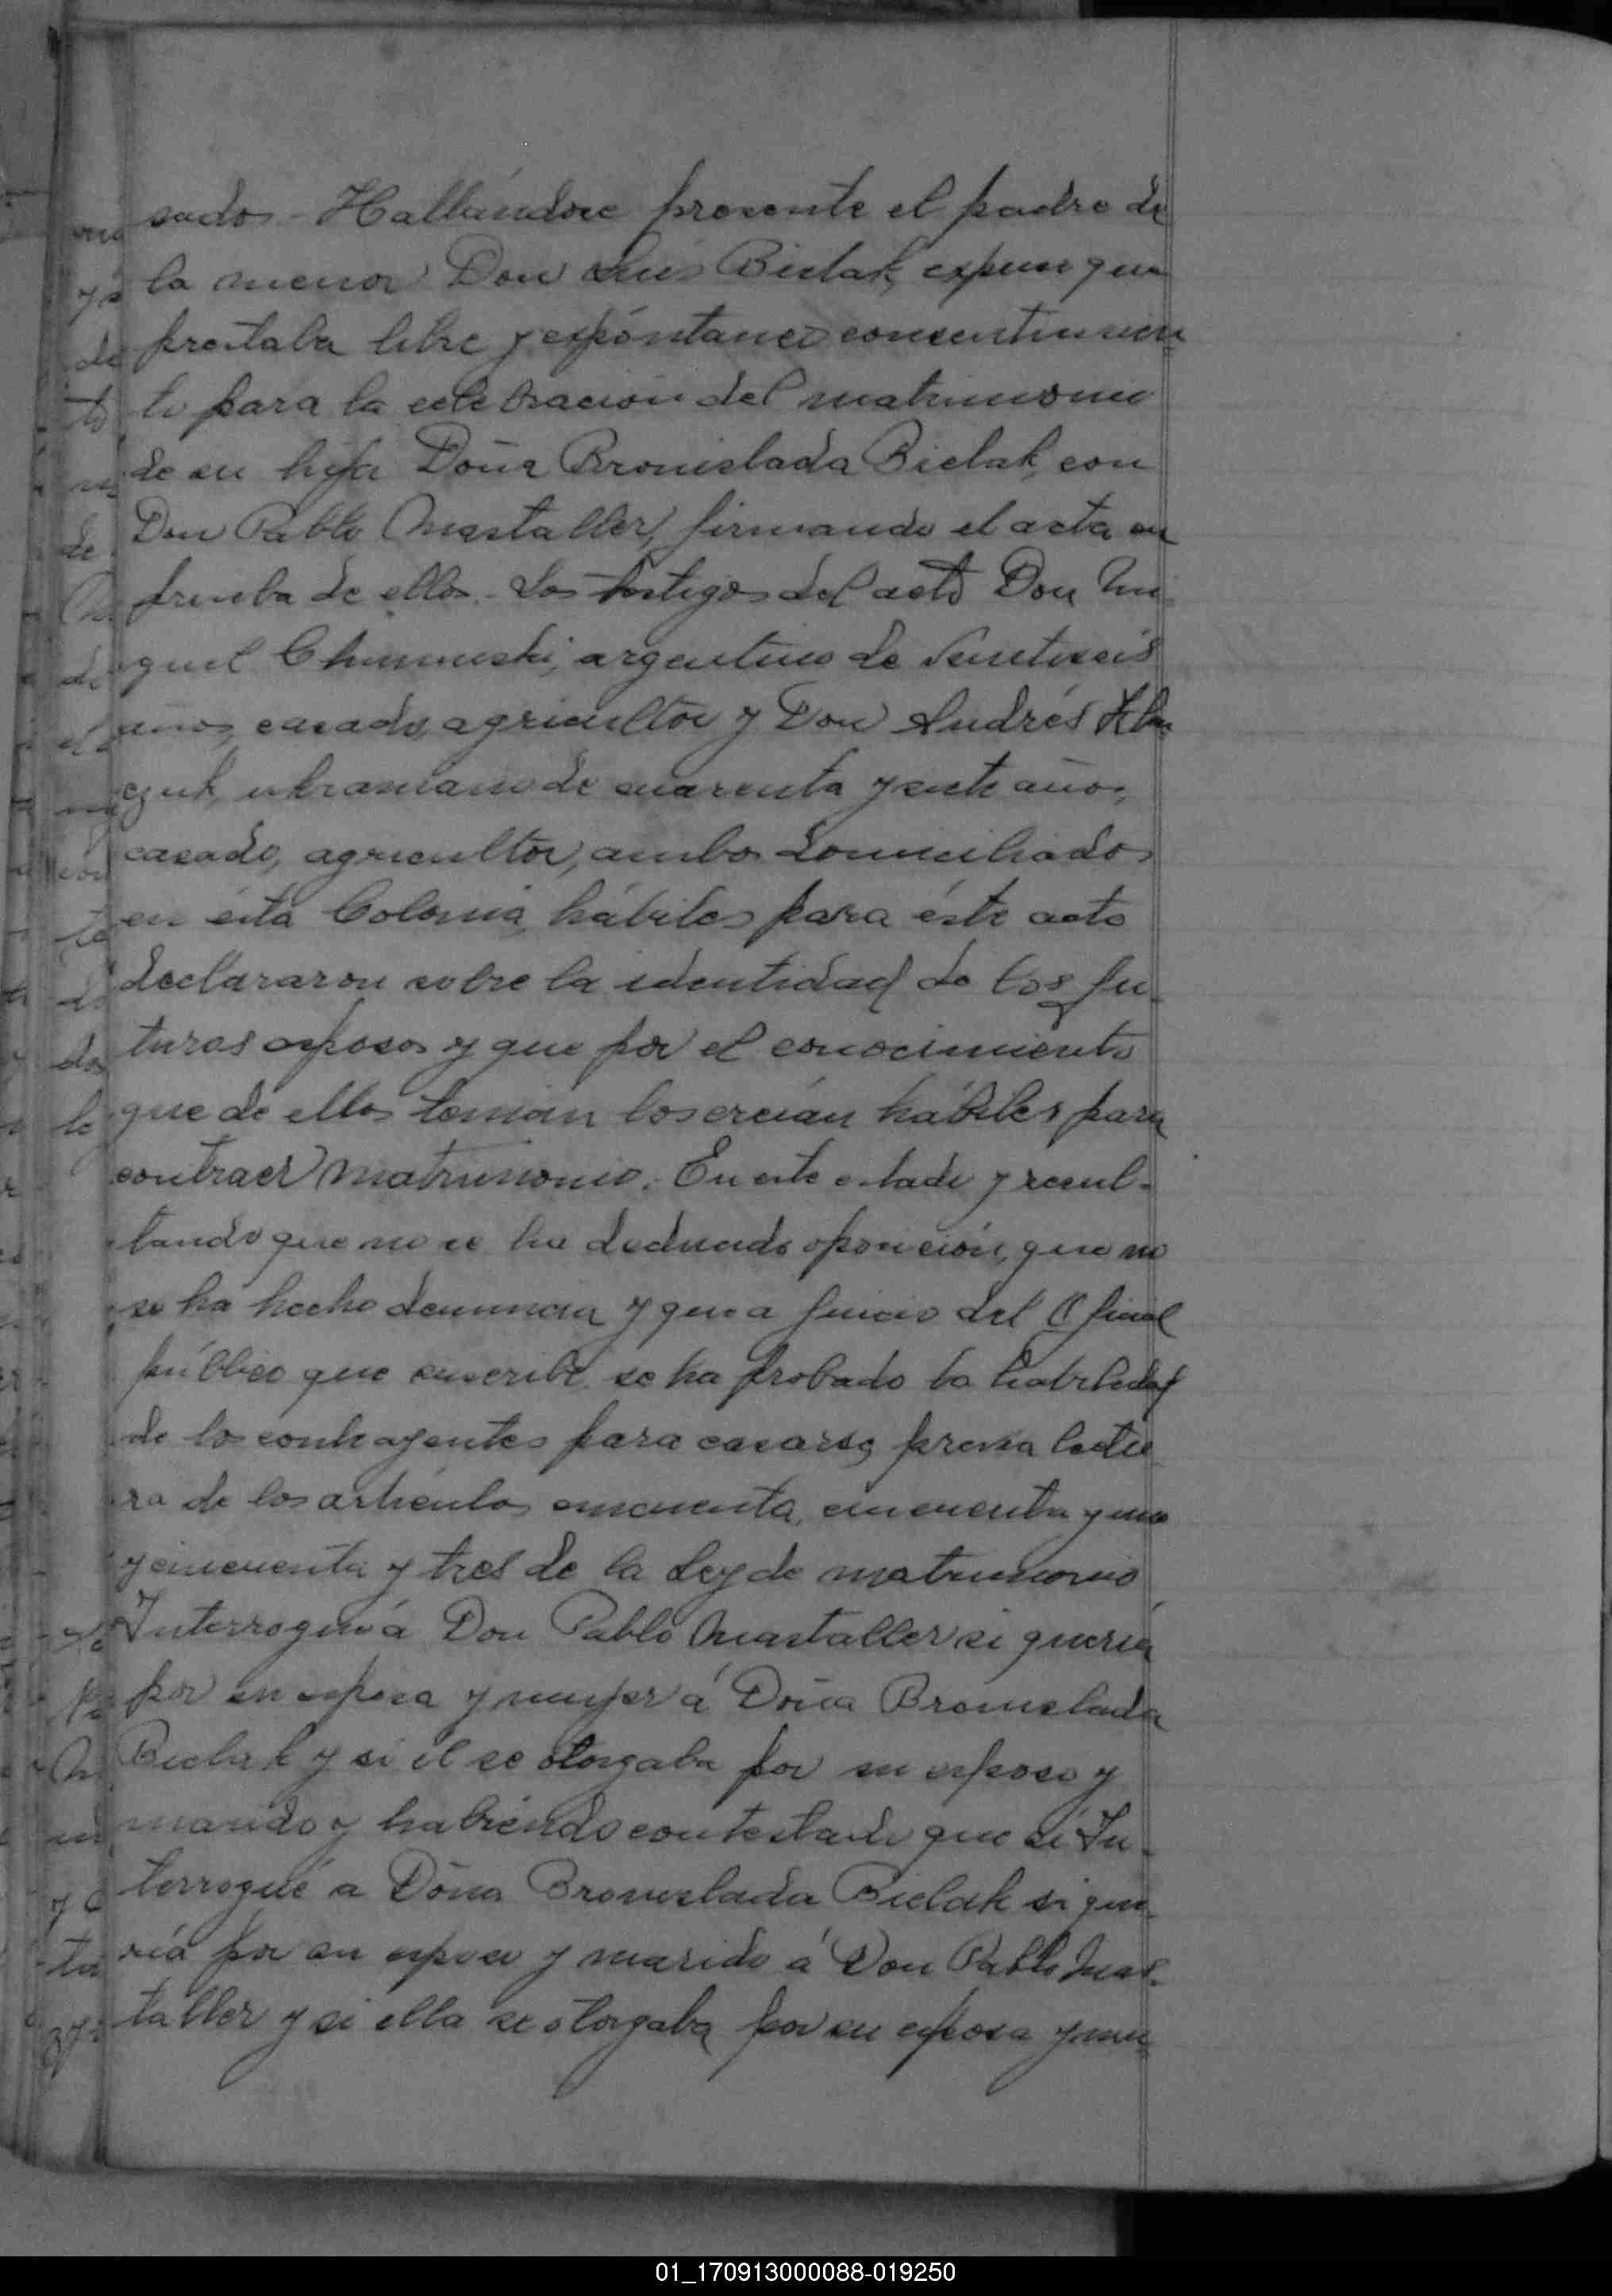 sados - Hallándose presente el padre de
la menor Don Luis Bielak, expuso que
prestaba libre y espóntaneo consentimien
to para la celebracion del matrimonio
de su hija Doña Bronislada Bielak, con
Don Pablo Mastaller, firmando el acta en
prueba de ellos. - Los testigos del acto Don Mi
guel argentino de
años, casado, agricultor y Don Andrés
ukraniano de cuarenta y siete años,
casado, agricultor, ambos domiciliados
en ésta Colonia, hábiles para éste acto
declararon sobre la identidad de los fu-
turos esposos y que por el conocimiento
que de ellos tenian los creían hábiles para
contraer matrimonio. En este estado y resul-
tando que no se ha deducido oposición, que no
se ha hecho denuncia y que a juicio del Oficial
público que suscribe se ha probado la habilidad
de los contrayentes para casarse, previa lectu
ra de los artículos cincuenta, cincuenta y uno
y cincuenta y tres de la Ley de matrimonio
Interrogué á Don Pablo Mastaller si quería
por su esposa y mujer á Doña Bronislada
Bielak y si él se otorgaba por su esposo y
marido y habiendo contestado que sí In-
terrogué a Doña Bronislada Bielak si que-
ría por su esposo y marido á Don Pablo Mas-
taller y si ella se otorgaba por su esposa y mu-
01_170913000088-019250